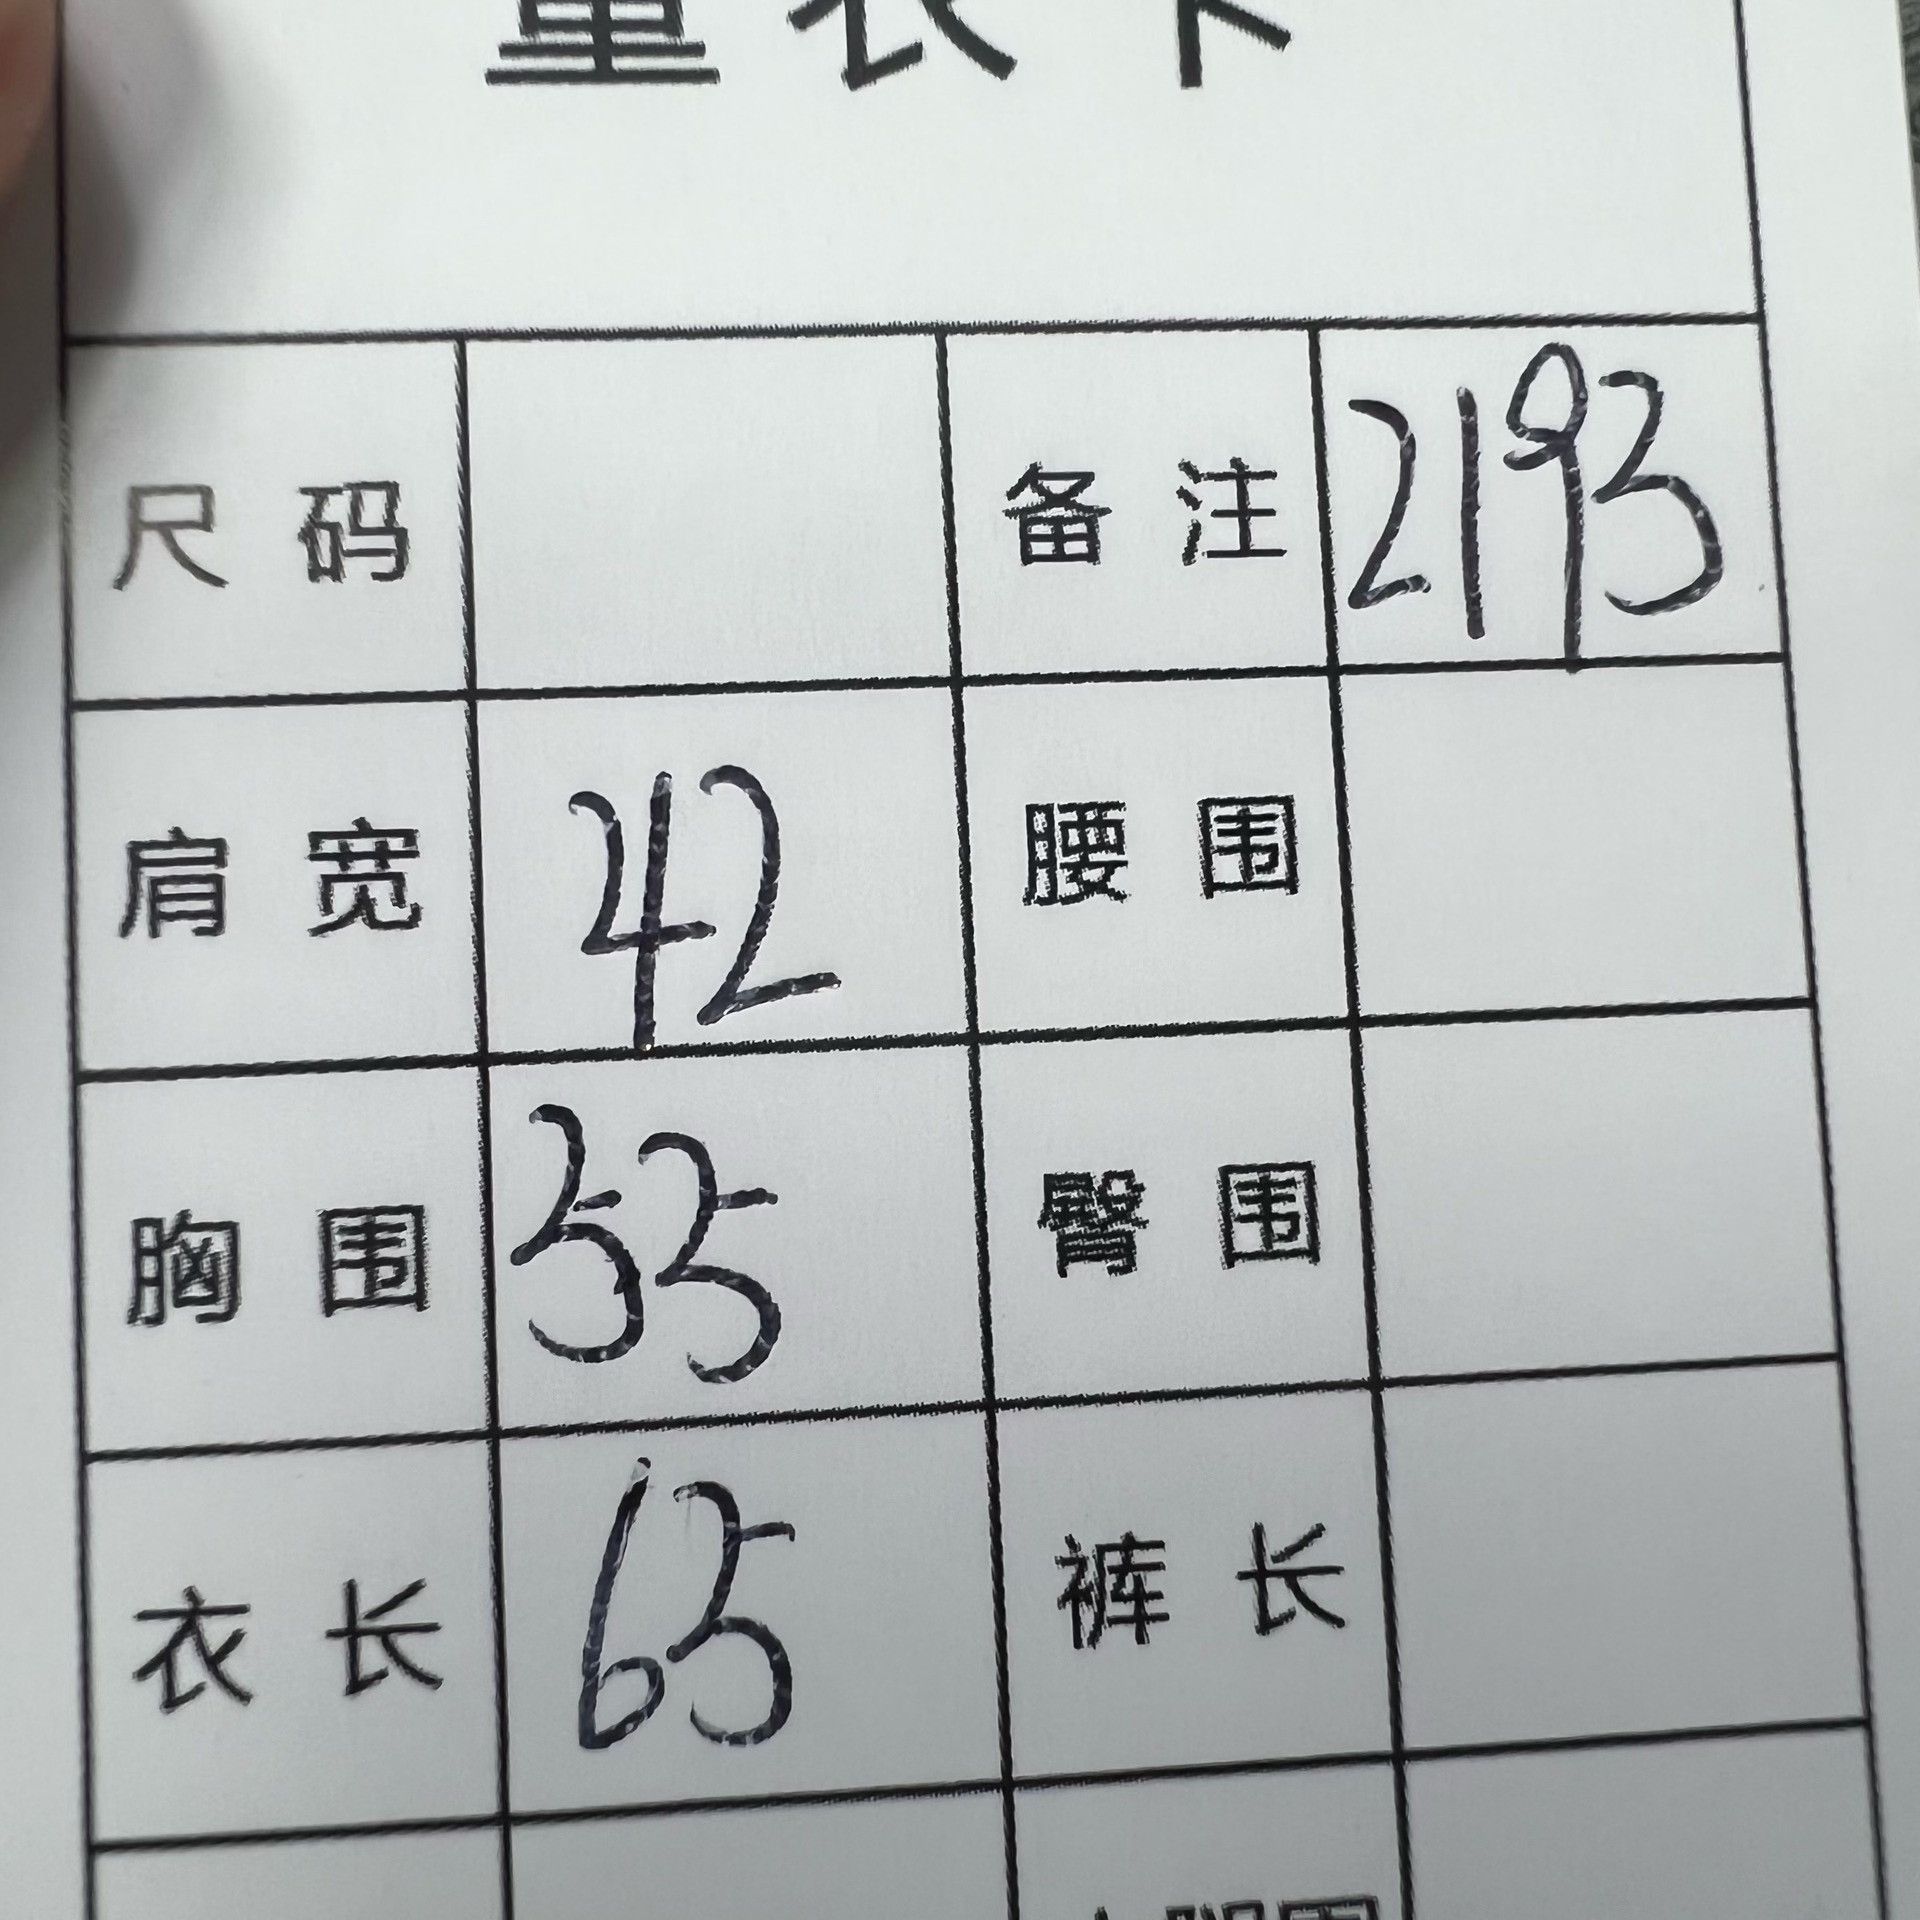 量衣卡
尺码 备注 2193
肩宽 42 腰围
胸围 55 臀围
衣长 65 裤长